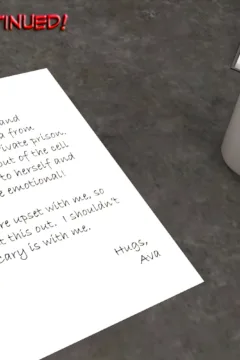 TINUED!
and
a from
rivate prison,
out of the cell
to herself and
e emotional!
re upset with me, so
t this out. I shouldn't
cary is with me.
Hugs,
Ava